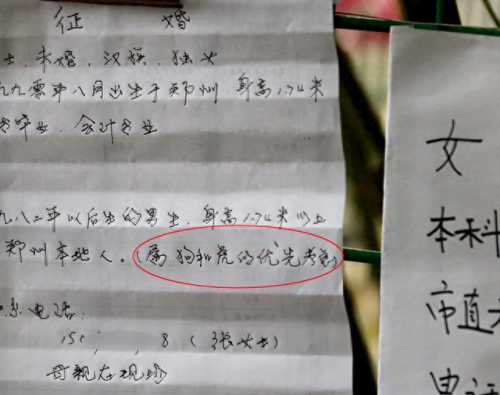 征 婚
士, 未婚, 汉族, 独女
九九零年八月出生于郑州, 身高1.74米
毕业, 会计专业
九八二年以后生的男生, 身高1.74米以上
郑州本地人。(属狗和虎的优先考虑)
系电话:
15 8 (张女士)
母亲在现场
女
本科
市直
电话